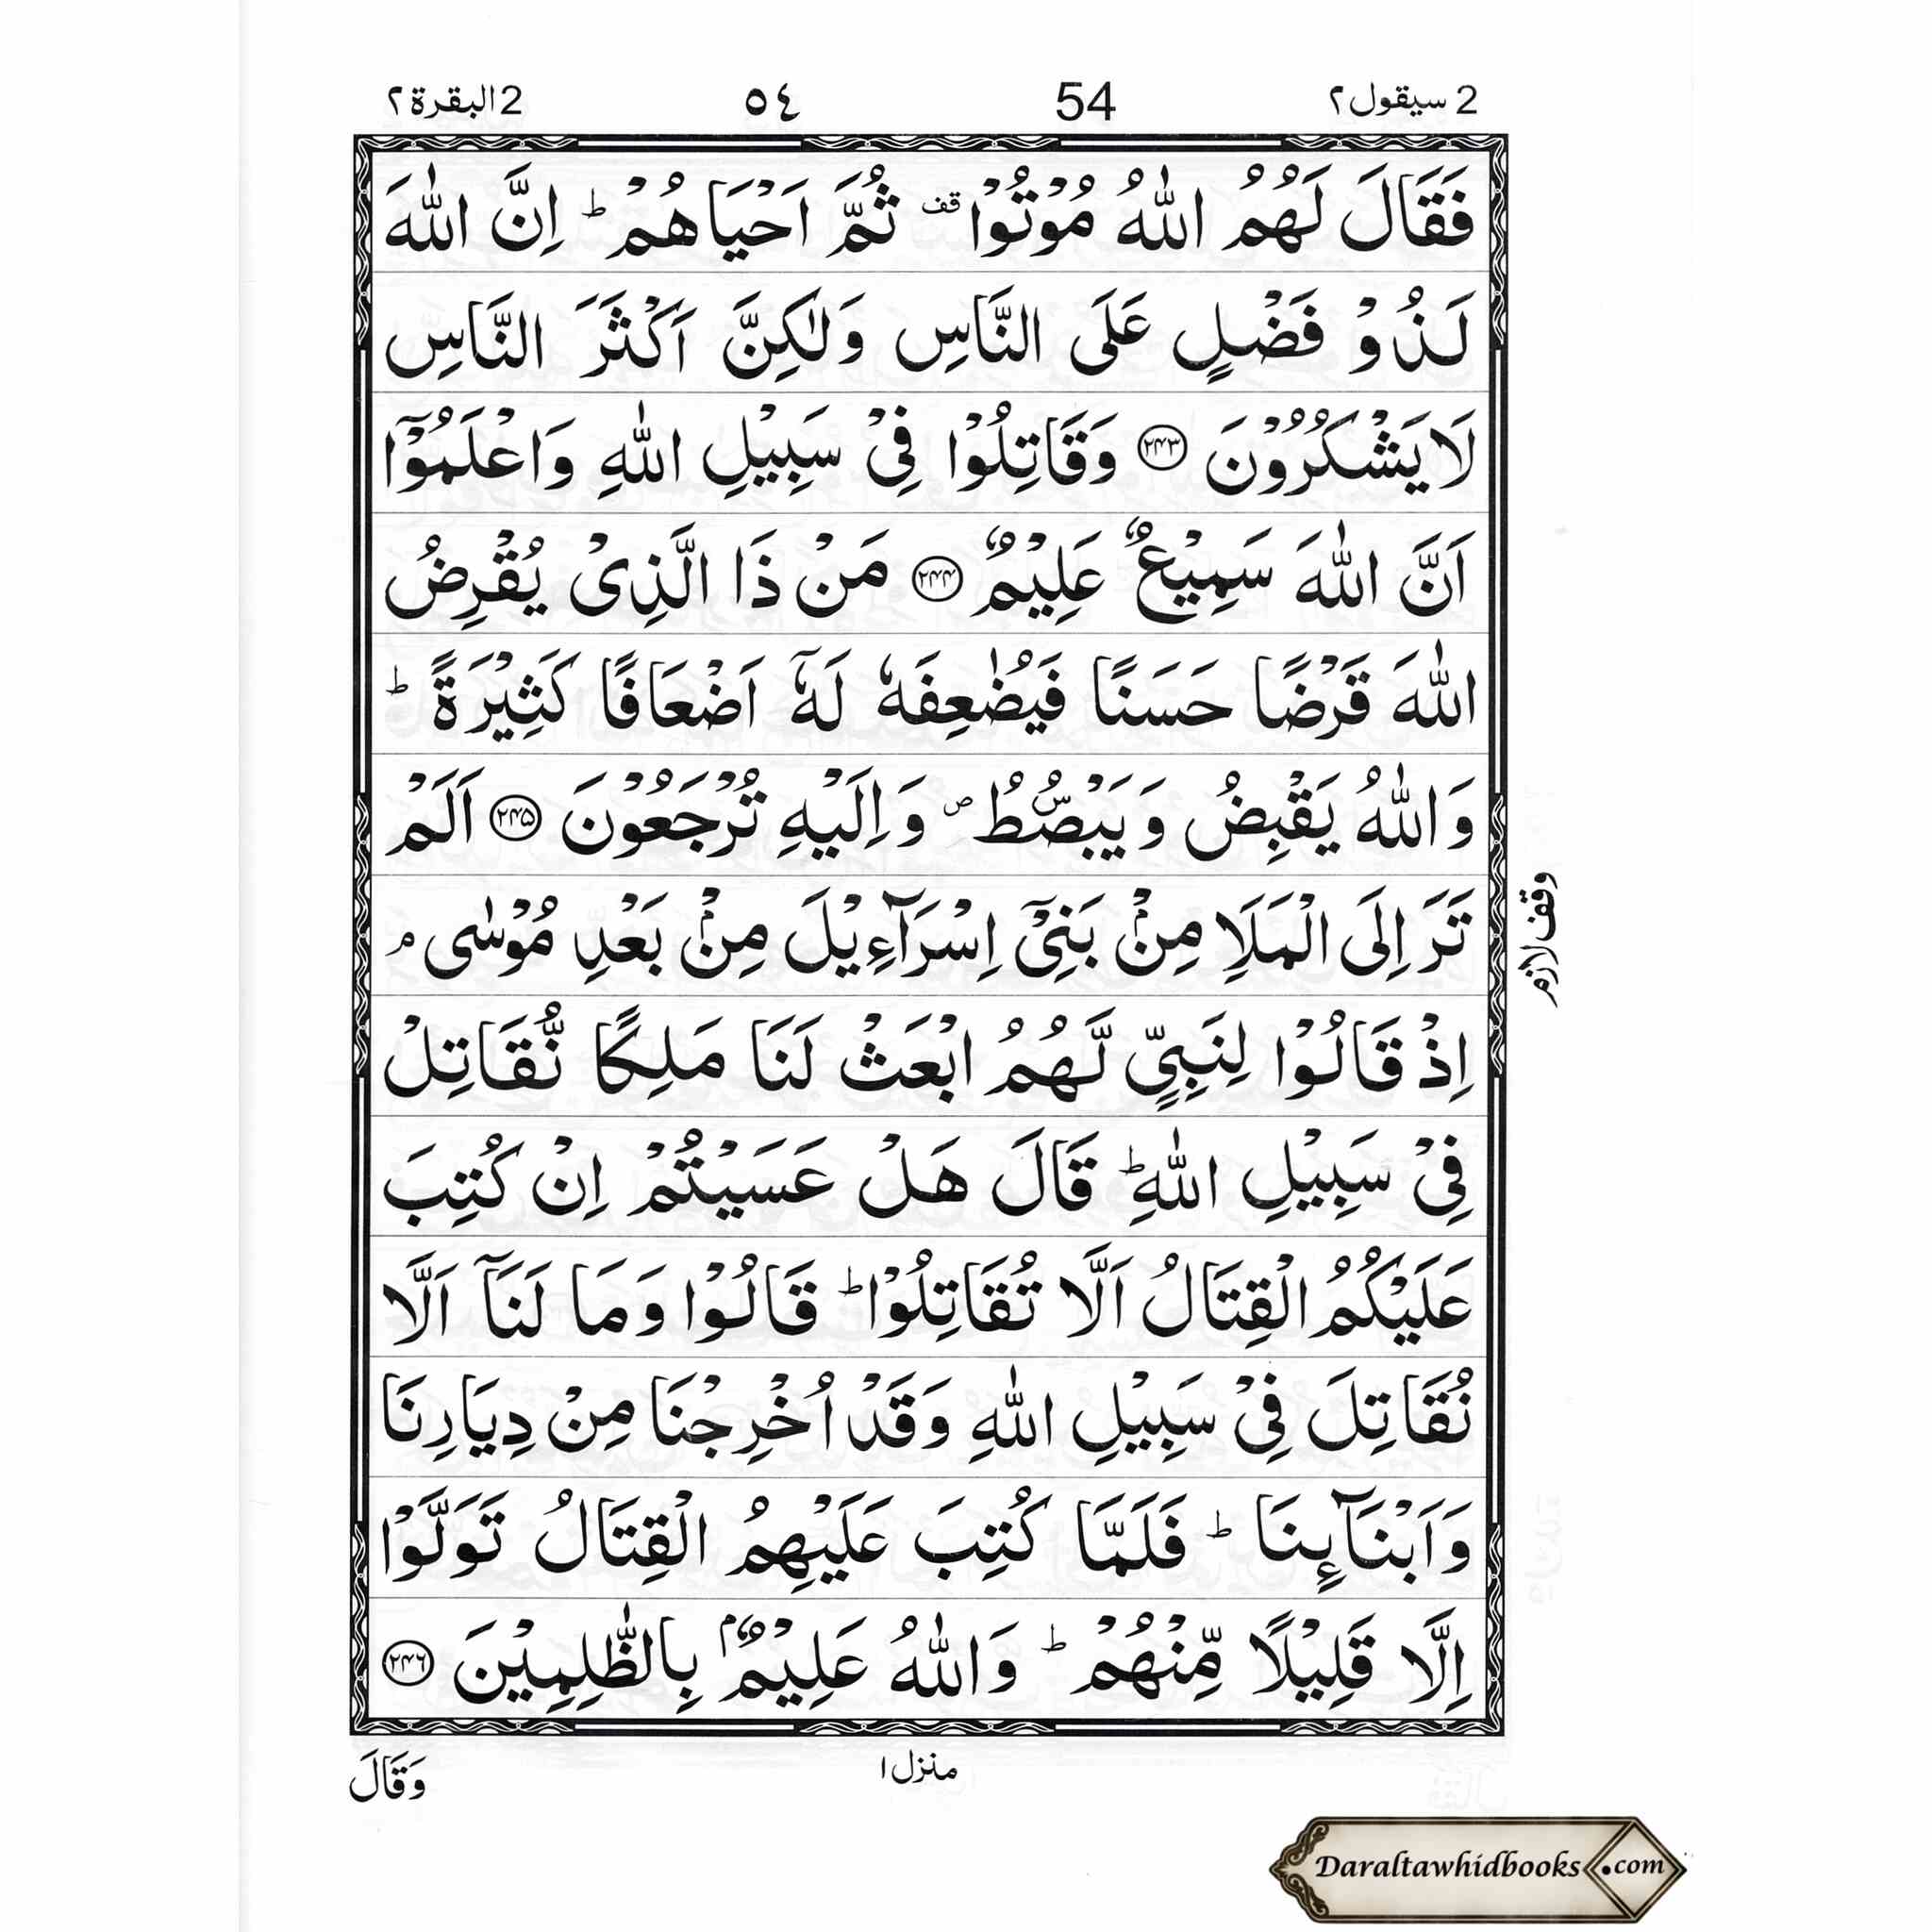 2 سيقول ٢ 54 ٥٤ 2 البقرة ٢
فَقَالَ لَهُمُ اللّٰهُ مُوْتُوْا ۫ ثُمَّ اَحْيَاهُمْ ؕ اِنَّ اللّٰهَ
لَذُوْ فَضْلٍ عَلَى النَّاسِ وَلٰكِنَّ اَكْثَرَ النَّاسِ
لَا يَشْكُرُوْنَ ﴿۲۴۳﴾ وَقَاتِلُوْا فِيْ سَبِيْلِ اللّٰهِ وَاعْلَمُوْۤا
اَنَّ اللّٰهَ سَمِيْعٌ عَلِيْمٌ ﴿۲۴۴﴾ مَنْ ذَا الَّذِيْ يُقْرِضُ
اللّٰهَ قَرْضًا حَسَنًا فَيُضٰعِفَهٗ لَهٗۤ اَضْعَافًا كَثِيْرَةً ؕ
وَاللّٰهُ يَقْبِضُ وَيَبْصُۜطُ ۪ وَاِلَيْهِ تُرْجَعُوْنَ ﴿۲۴۵﴾ اَلَمْ
تَرَ اِلَى الْمَلَاِ مِنْۢ بَنِيْۤ اِسْرَآءِيْلَ مِنْۢ بَعْدِ مُوْسٰى ۘ
اِذْ قَالُوْا لِنَبِيٍّ لَّهُمُ ابْعَثْ لَنَا مَلِكًا نُّقَاتِلْ
فِيْ سَبِيْلِ اللّٰهِ ؕ قَالَ هَلْ عَسَيْتُمْ اِنْ كُتِبَ
عَلَيْكُمُ الْقِتَالُ اَلَّا تُقَاتِلُوْا ؕ قَالُوْا وَمَا لَنَاۤ اَلَّا
نُقَاتِلَ فِيْ سَبِيْلِ اللّٰهِ وَقَدْ اُخْرِجْنَا مِنْ دِيَارِنَا
وَاَبْنَآئِنَا ؕ فَلَمَّا كُتِبَ عَلَيْهِمُ الْقِتَالُ تَوَلَّوْا
اِلَّا قَلِيْلًا مِّنْهُمْ ؕ وَاللّٰهُ عَلِيْمٌۢ بِالظّٰلِمِيْنَ ﴿۲۴۶﴾
وقف لازم
منزل ۱
وَقَالَ
Daraltawhidbooks.com